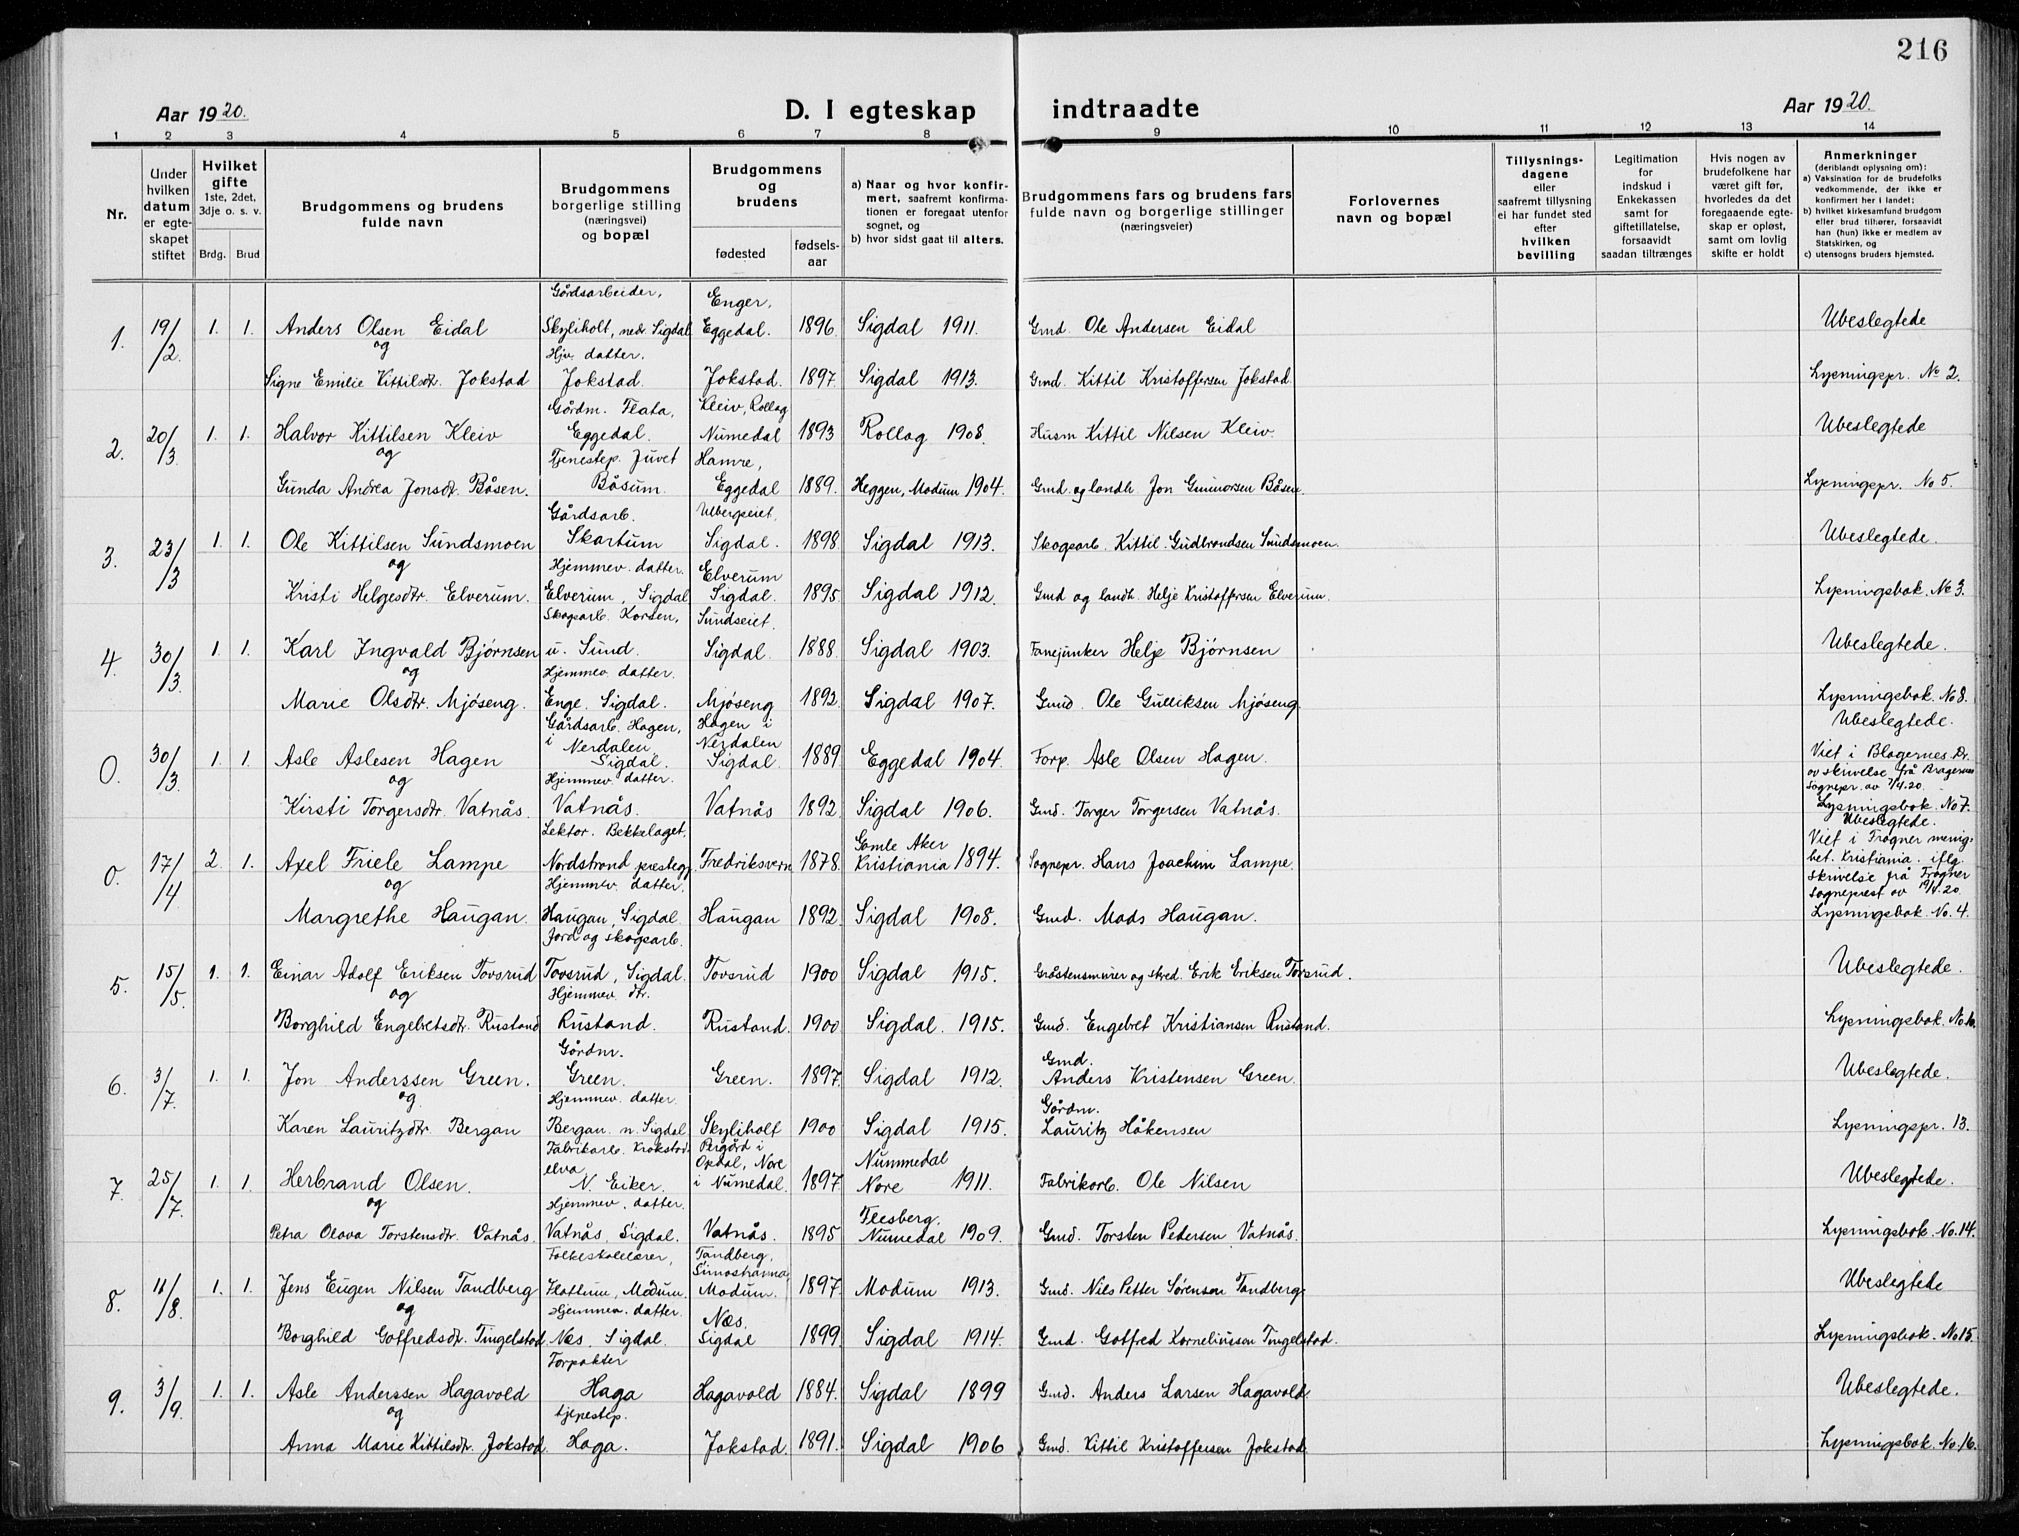 216
Aar 1920.
D. I egteskap indtraadte
Aar 1920.
1 2 3 4 5 6 7 8 9 10 11 12 13 14
Nr.
Under hvilken datum er egteskapet stiftet
Hvilket gifte 1ste, 2det, 3dje o. s. v.
Brdg. Brud
Brudgommens og brudens fulde navn
Brudgommens borgerlige stilling (næringsvei) og bopæl
Brudgommens og brudens
fødested fødsels-aar
a) Naar og hvor konfirmert, saafremt konfirmationen er foregaat utenfor sognet, og
b) hvor sidst gaat til alters.
Brudgommens fars og brudens fars fulde navn og borgerlige stillinger (næringsveier)
Forlovernes navn og bopæl
Tillysningsdagene eller saafremt tillysning ei har fundet sted efter hvilken bevilling
Legitimation for indskud i Enkekassen samt for giftetillatelse, forsaavidt saadan tiltrænges
Hvis nogen av brudefolkene har været gift før, hvorledes da det foregaaende egteskap er opløst, samt om lovlig skifte er holdt
Anmerkninger (deriblandt oplysning om):
a) Vaksination for de brudefolks vedkommende, der ikke er konfirmert her i landet;
b) hvilket kirkesamfund brudgom eller brud tilhører, forsaavidt han (hun) ikke er medlem av Statskirken, og
c) utensogns bruders hjemsted.
Gårdsarbeider, Enger,
1. 19/2 1. 1. Anders Olsen Eidal Skyliholt, nedr. Sigdal Eggedal. 1896. Sigdal 1911. Gmd. Ole Andersen Eidal Ubeslegtede
og Hjv. datter.
Signe Emilie Kittilsdtr. Jokstad Jokstad. Jokstad. 1897. Sigdal 1913. Gmd. Kittil Kristoffersen Jokstad. Lysningspr. No 2.
Gårdm. Flata, Kleiv, Rollag
2. 20/3 1. 1. Halvor Kittilsen Kleiv Eggedal. Numedal 1893 Rollag 1908. Husm Kittil Nilsen Kleiv. Ubeslegtede
og Tjenestep. Juvet Hamre,
Gunda Andrea Jonsdtr. Båsen. Båsum. Eggedal 1889. Heggen, Modum 1904. Gmd. og landh. Jon Gunnarsen Båsen. Lysningspr. No 5.
Gårdsarb. Ulbergseiet,
3. 23/3 1. 1. Ole Kittilsen Sundsmoen Skartum Sigdal. 1898. Sigdal 1913. Skogsarb. Kittil Gudbrandsen Sundsmoen. Ubeslegtede.
og Hjemmev. datter. Elverum
Kristi Helgesdtr. Elverum. Elverum, Sigdal Sigdal. 1895. Sigdal 1912. Gmd og landh. Helje Kristoffersen Elverum. Lysningsbok. No 3.
Skogsarb. Korsen, Sundseiet.
4. 30/3 1. 1. Karl Ingvald Bjørnsen u. Sund. Sigdal. 1888. Sigdal 1903. Fanejunker Helje Bjørnsen Ubeslegtede.
og Hjemmev. datter.
Marie Olsdtr. Mjøseng. Enge. Sigdal. Mjøseng 1892. Sigdal 1907. Gmd. Ole Gulliksen Mjøseng. Lysningsbok. No 8.
Gårdsarb. Hagen, Hagen i Ubeslegtede.
i Nerdalen Nerdalen
0. 30/3 1. 1. Asle Aslesen Hagen Sigdal. Sigdal. 1889. Eggedal 1904. Forp. Asle Olsen Hagen. Viet i Bragernes Dr.
og Hjemmev. datter. ov skrivelse frå Bragernes
Sognepr. av 7/4.20.
Kirsti Torgersdtr. Vatnås. Vatnås. Vatnås 1892. Sigdal 1906. Gmd. Torger Torgersen Vatnås. Lysningsbok. No 7.
Lektor. Bekkelaget, Gamle Aker Ubeslegtede.
0. 17/4 2. 1. Axel Friele Lampe Nordstrand prestegj. Fredriksvern 1878. Kristiania 1894. Sognepr. Hans Joachim Lampe. Viet i Frogner menighet. Kristiania. iflg.
og Hjemmev. datter. skrivelse frå Frogner
sogneprest av 19/4.20.
Margrethe Haugan. Haugan, Sigdal. Haugan 1892. Sigdal 1908. Gmd. Mads Haugan. Lysningsbok. No. 4.
Jord og skogsarb.
5. 15/5. 1. 1. Einar Adolf Eriksen Tovsrud Tovsrud, Sigdal. Tovsrud 1900 Sigdal 1915. Gråstensmurer og skred. Erik Eriksen Tovsrud. Ubeslegtede.
og Hjemmev. dtr.
Borghild Engebretsdtr. Rustand Rustand. Rustand. 1900 Sigdal. 1915. Gmd. Engebret Kristiansen Rustand. Lysningsbok. No 10.
Gårdm. Gmd.
6. 3/7. 1. 1. Jon Anderssen Green. Green. Green. 1897. Sigdal 1912. Anders Kristensen Green. Ubeslegtede.
og Hjemmev. datter. Gårdm.
Karen Lauritzdtr. Bergan Bergan. n. Sigdal Skyliholt 1900 Sigdal 1915. Lauritz Håkensen Lysningspr. 13.
Fabrikarb. Krokstad-elva Bergård i Opdal, Nore Nummedal
7. 25/7. 1. 1. Herbrand Olsen. N. Eiker. i Numedal. 1897. Nore 1911. Fabrikarb. Ole Nilsen Ubeslegtede.
og Hjemmev. datter. Flesberg.
Petra Olava Torstensdtr. Vatnås. Vatnås, Sigdal. Vatnås. 1895 Numedal 1909. Gmd. Torsten Petersen Vatnås. Lysningsbok. No. 14.
Folkeskolelærer, Tandberg, Simostranna,
8. 11/8. 1. 1. Jens Eugen Nilsen Tandberg Flattum, Modum. Modum. 1897. Modum 1913. Gmd. Nils Petter Sørensen Tandberg. Ubeslegtede
og Hjemmev. datter. Næs.
Borghild Gotfredsdtr. Tingelstad Næs, Sigdal. Sigdal 1899. Sigdal 1914. Gmd. Gotfred Korneliussen Tingelstad. Lysningsbok. No 15.
Forpakter
9. 3/9. 1. 1. Asle Anderssen Hagavold Haga Hagavold 1884. Sigdal 1899 Gmd. Anders Larsen Hagavold. Ubeslegtede.
og tjenestep.
Anna Marie Kittilsdtr. Jokstad. Haga. Jokstad. 1891. Sigdal 1906 Gmd. Kittil Kristoffersen Jokstad. Lysningsbok. No. 16.